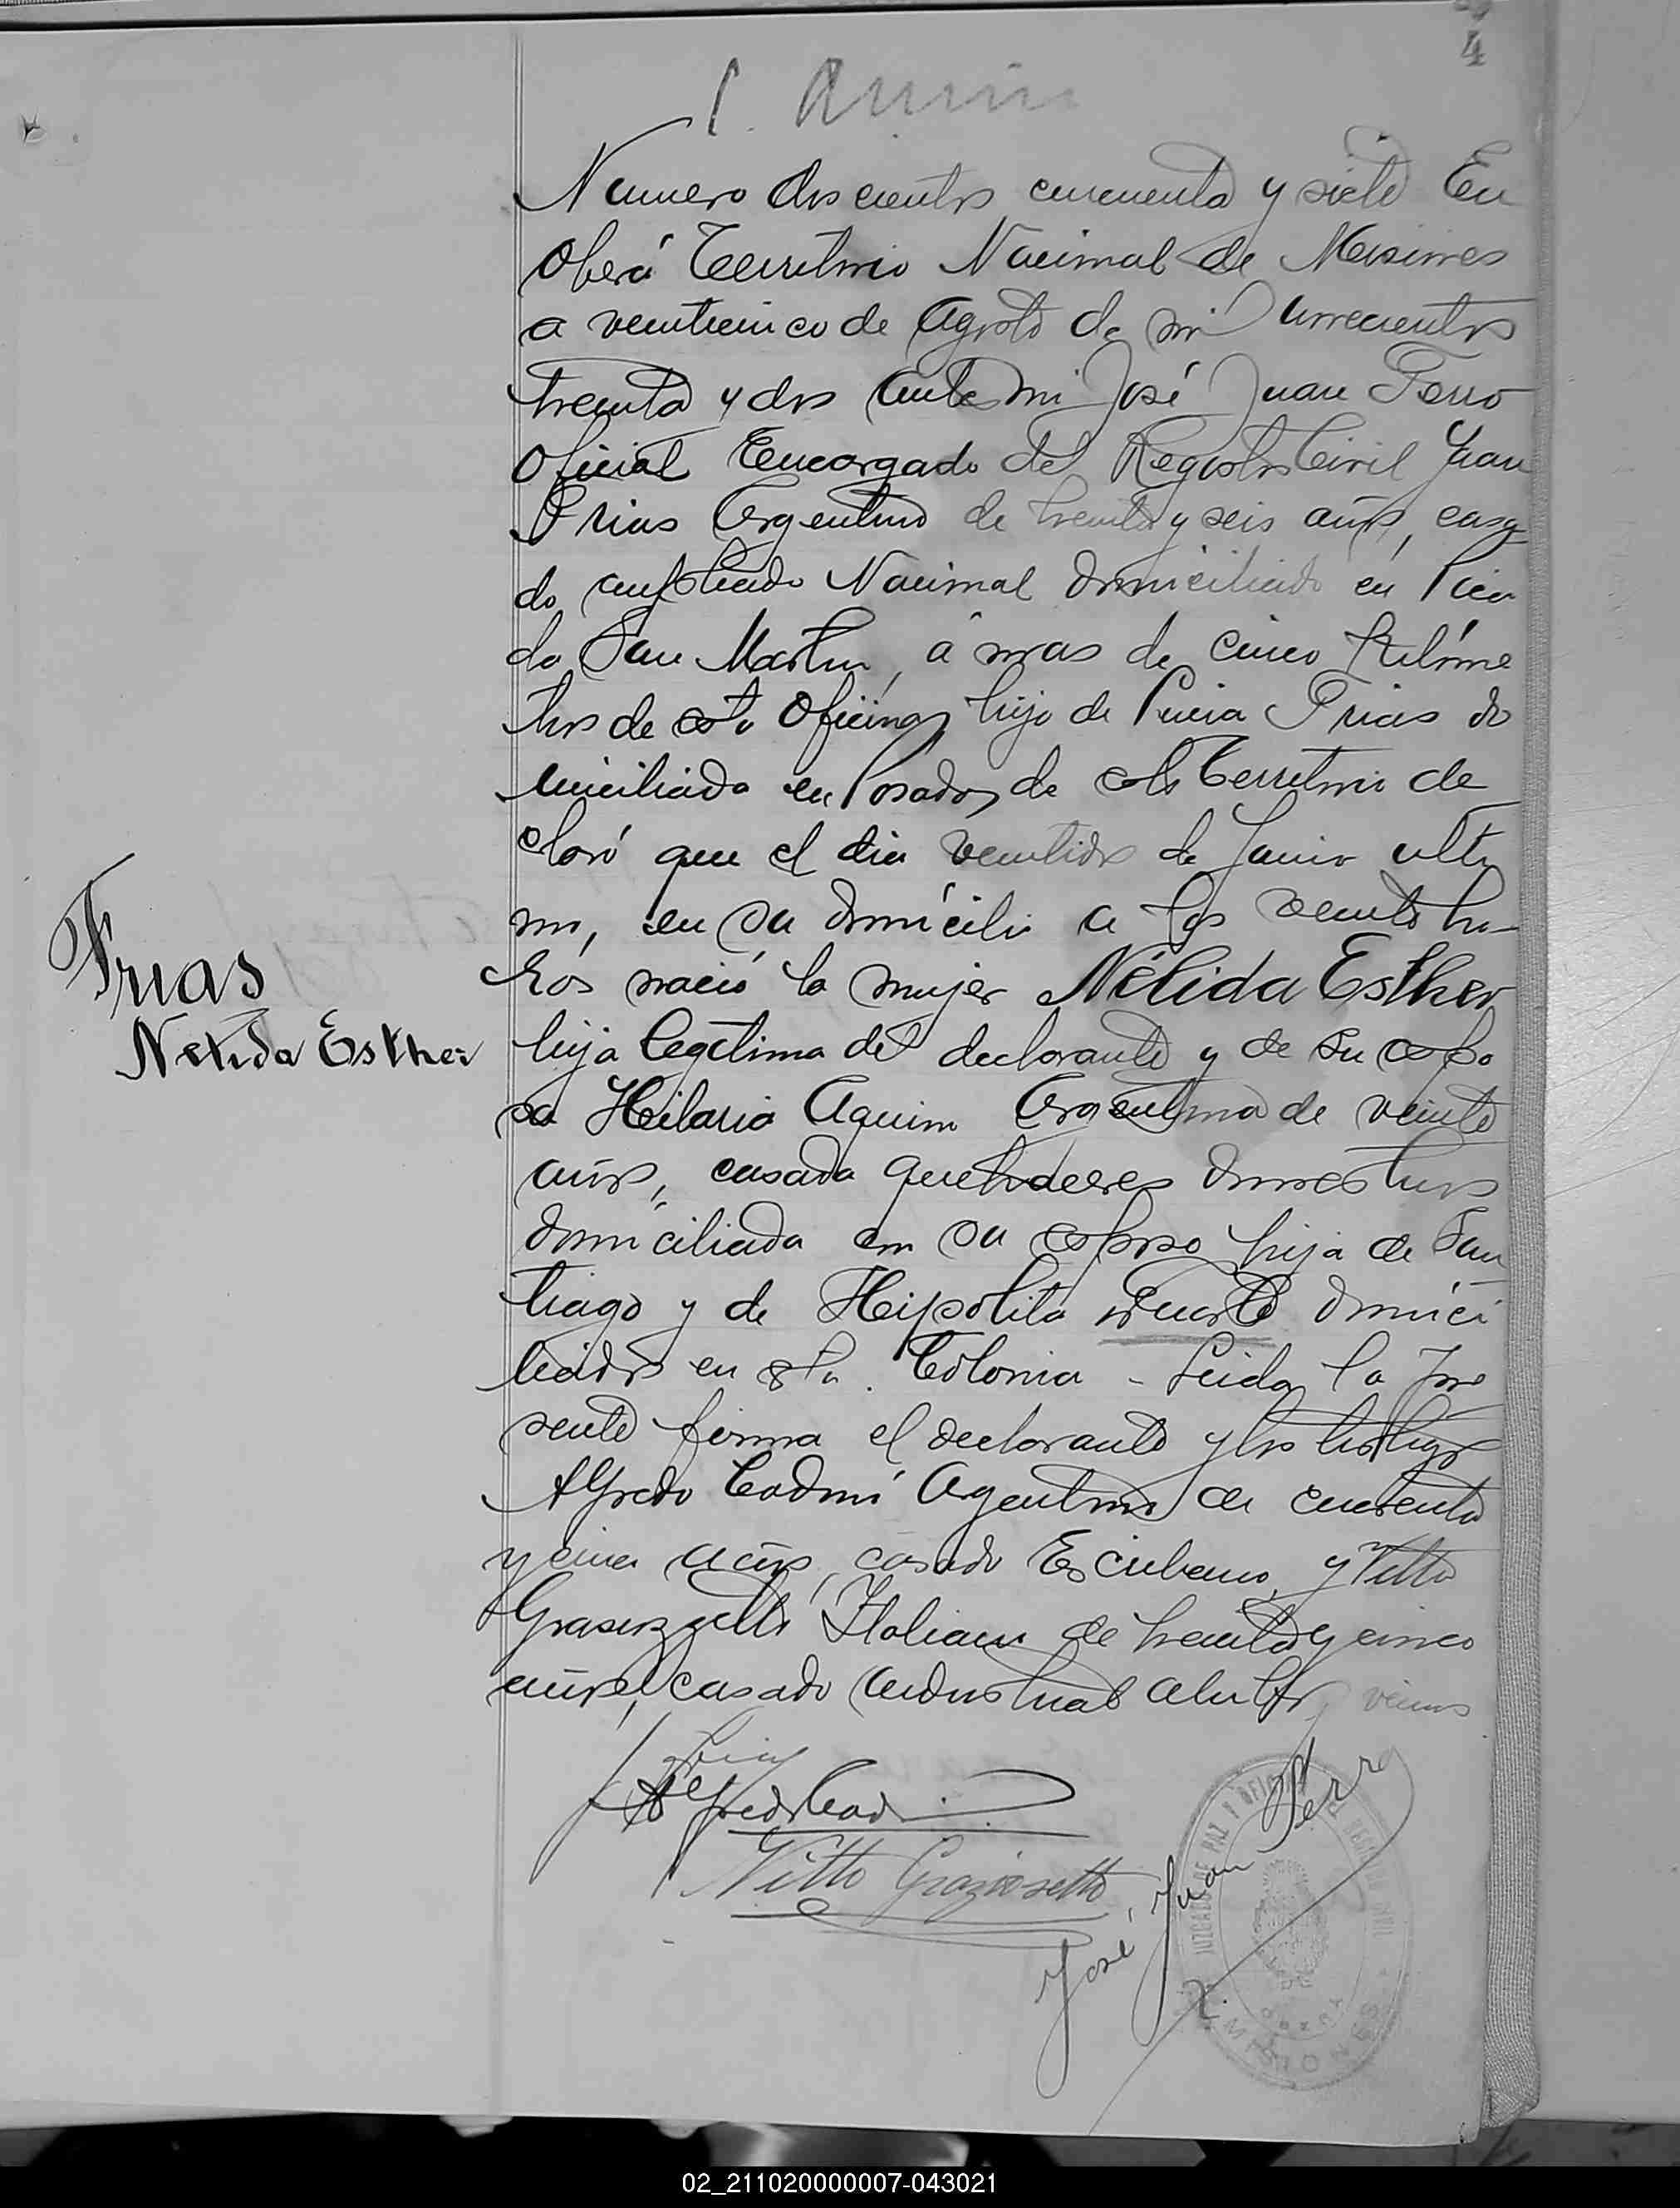 4
Numero doscientos cincuenta y siete En
Oberá Territorio Nacional de Misiones
a veinticinco de Agosto de mil novecientos
treinta y dos ante mi José Juan Ferro
Oficial Encargado del Registro Civil Juan
Frias Argentino de treinta y seis años, casa
do empleado Nacional domiciliado en Pica
da San Martin, á mas de cinco kilóme
tros de esta Oficina, hijo de Frias do
miciliada en Posadas, de este Territorio de
claró que el dia veintidos de Junio ulti
mo, en su domicilio a las veinte ho-
ras nació la mujer Nélida Esther
hija legitima del declarante y de su espo
sa Hilaria Aquino Argentina de veinte
años, casada quehaceres domesticos
domiciliada con su esposo hija de San
tiago y de Hipolita Duarte domici
liados en esta Colonia - Leida la pre
sente firma el declarante y los testigos
Alfredo Argentino de cuarenta
y cinco años, casado Escribano, y Vitto
Italiano de treinta y cinco
años, casado industrial ambos vecinos
Frias
Nelida Esther
J Frias
Alfredo
Vitto Graziosetto
José Juan Ferro
JUZGADO DE PAZ Y OFICINA DEL REGISTRO CIVIL
OBERA
MISIONES
02_211020000007-043021